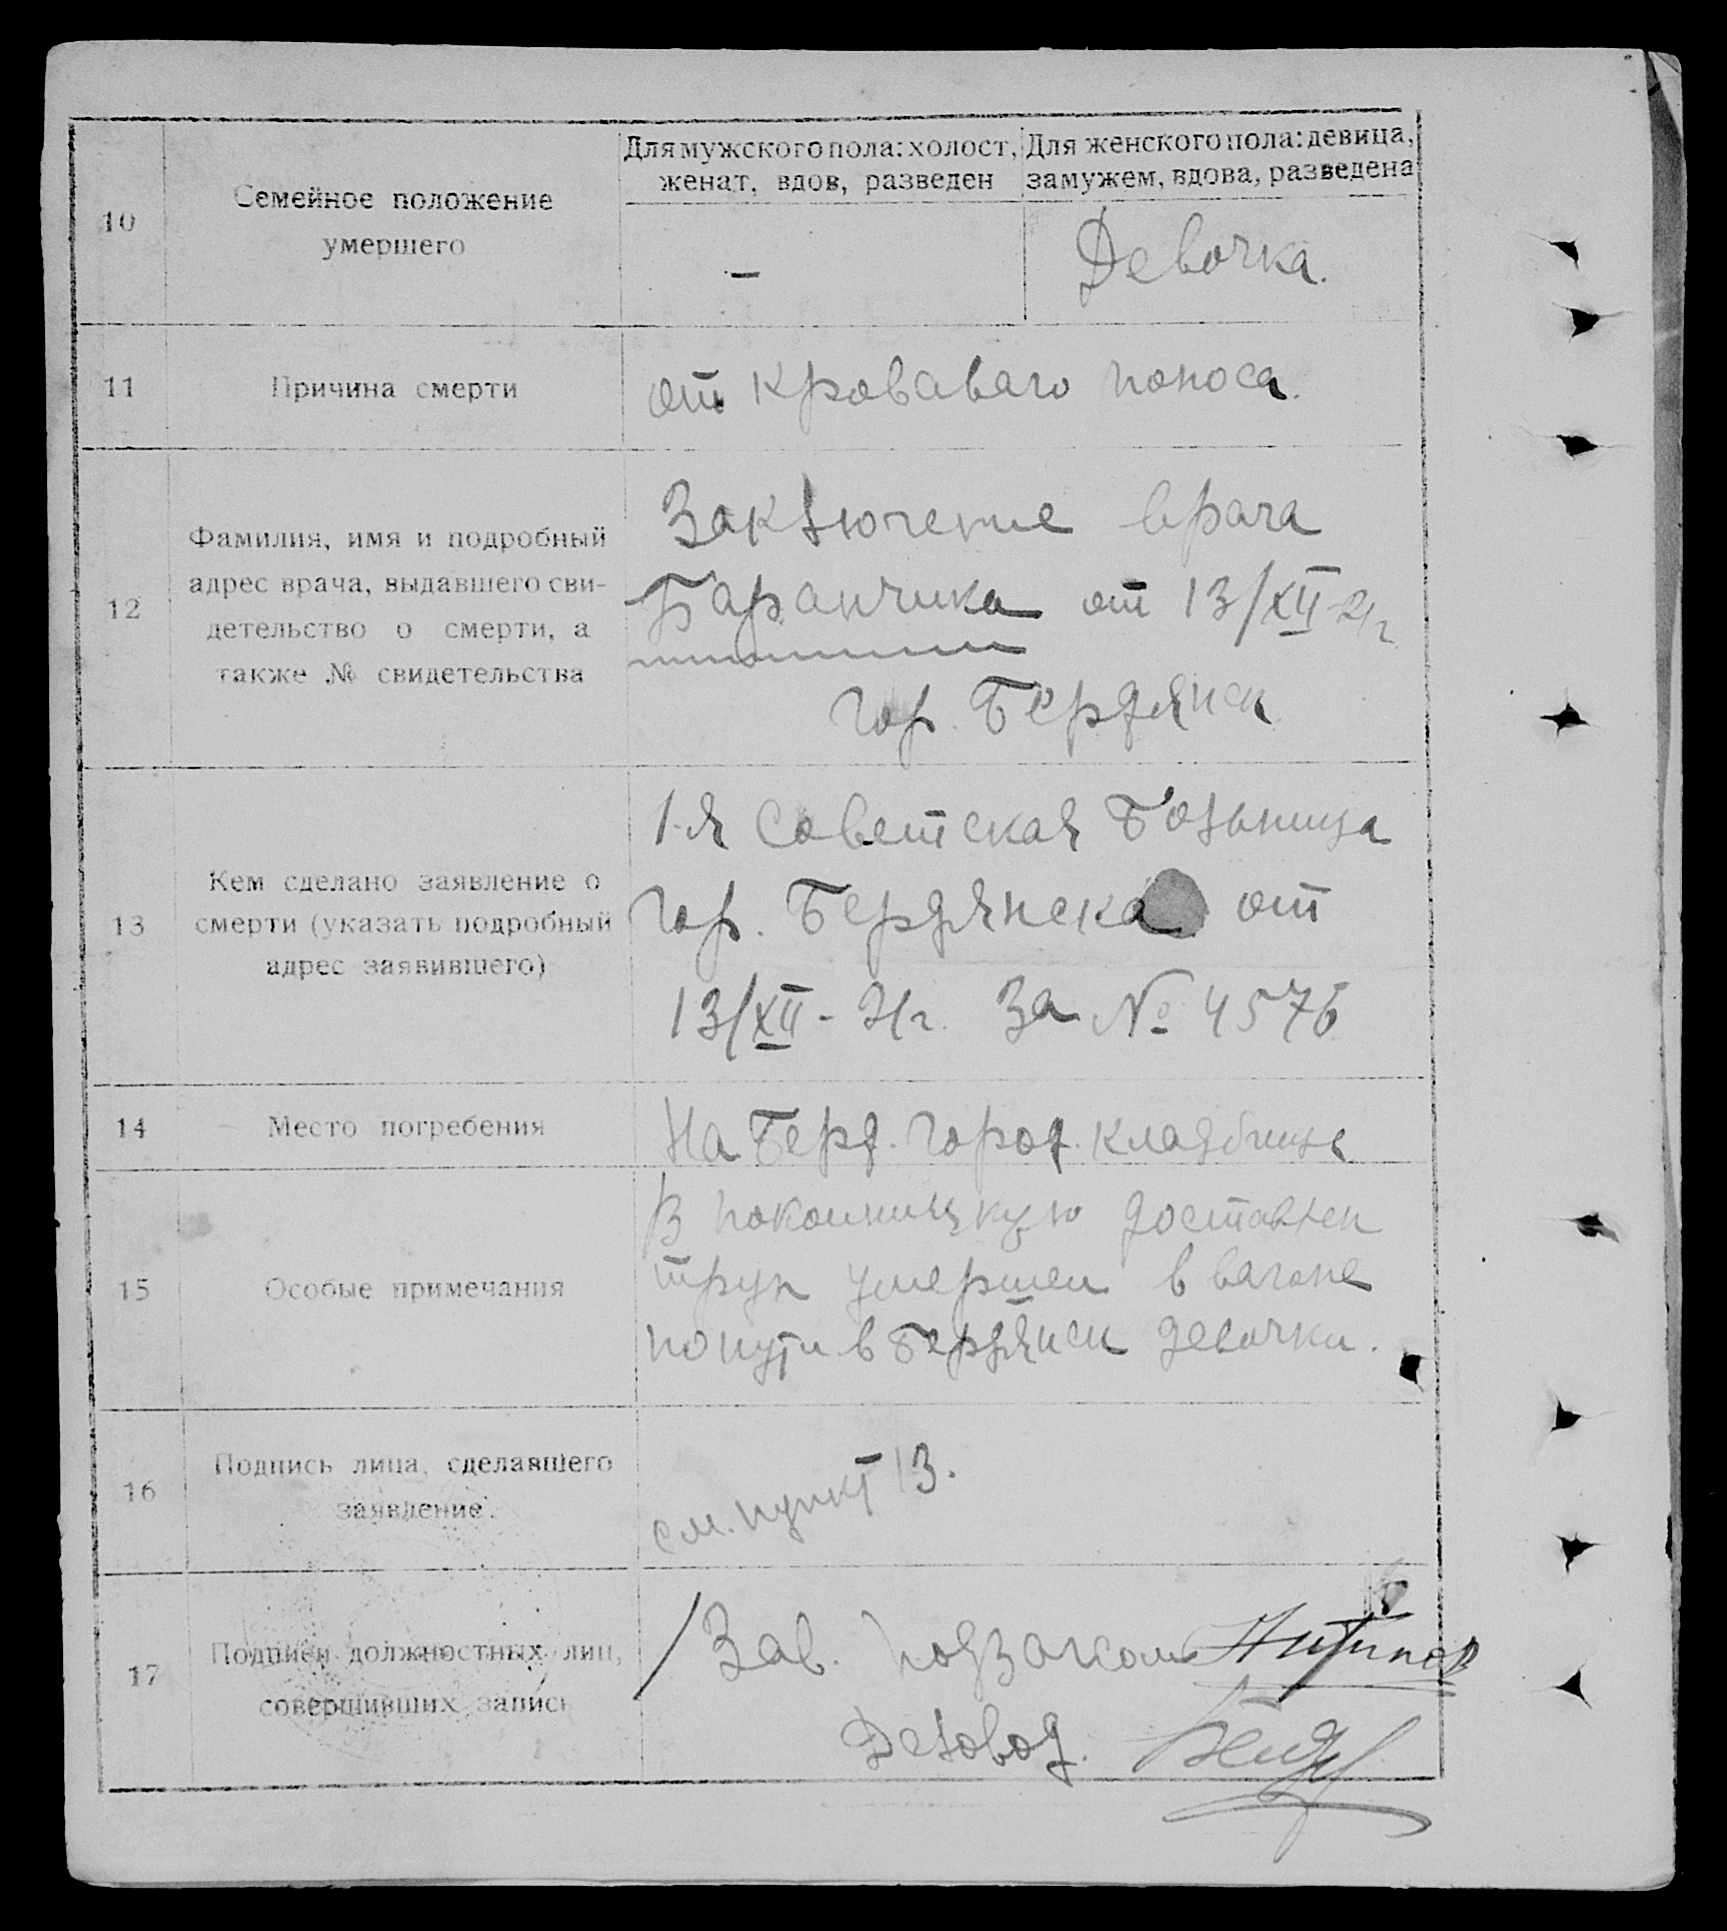 10
Семейное положение
умершего
Для мужского пола: холост,
женат, вдов, разведен
Для женского пола: девица,
замужем, вдова, разведена
—
Девочка.
11
Причина смерти
от кроваваго поноса.
12
Фамилия, имя и подробный
адрес врача, выдавшего сви-
детельство о смерти, а
также № свидетельства
Заключение врача
Баранчика от 13/XII-21г
гор. Бердянск
13
Кем сделано заявление о
смерти (указать подробный
адрес заявившего)
1-я Советская Больница
гор. Бердянска от
13/XII-21г. За № 4576
14
Место погребения
На Берд. город. кладбище
15
Особые примечания
В покойницкую доставлен
труп умершей в вагоне
по пути в Бердянск девочки.
16
Подпись лица, сделавшего
заявление.
см. пункт 13.
17
Подписи должностных лиц,
совершивших запись
Зав. подзагсом
Деловод.